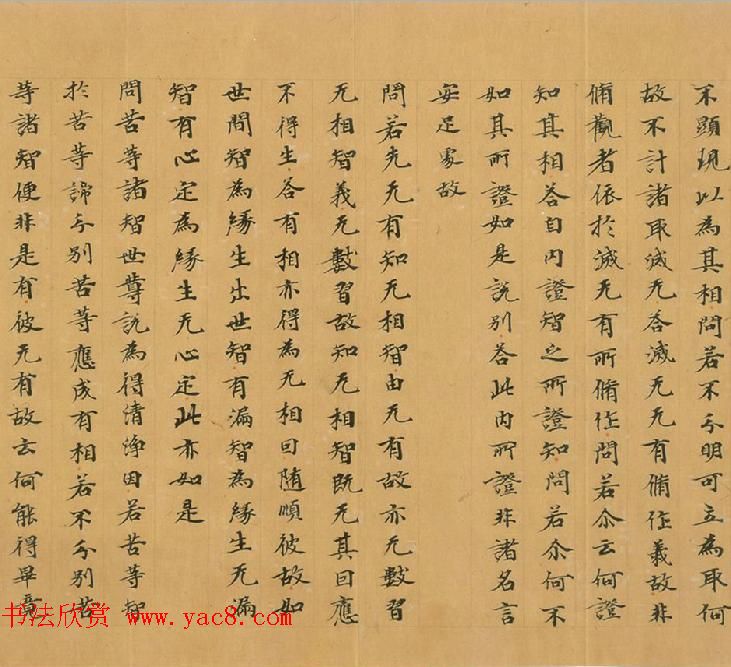 不顯現以為其相問若不分明可立為取何
故不計諸取滅无荅滅无无有脩住義故非
脩觀者依於滅无有所脩住問若尒云何證
知其相荅自内證智之所證知問若尒何不
如其所證如是說别荅此内所證非諸名言
安足處故
問若无无有知无相智由无有故亦无數習
无相智義无數習故知无相智既无其因應
不得生荅有相亦得為无相因隨順彼故如
世間智為緣生出世智有漏智為緣生无漏
智有心定為緣生无心定此亦如是
問苦等諸智世尊說為得清淨因若苦等智
於苦等諦分别苦等應成有相若不分别苦
等諸智便非是有彼无有故云何能得畢竟
书法欣赏 http://www.yac8.com